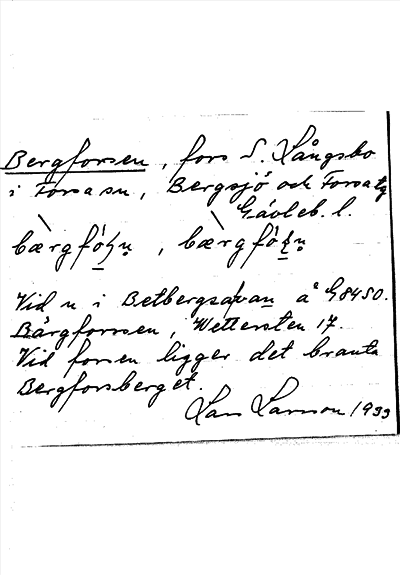 Bergforsen, fors S. Långsbo
i Forsa sn, Bergsjö och Forsa tg
Gävleb. l.
bærgfóɧṇ, bærgfó
Vid n i Betbergsåvan å G8450.
Bärgforssen, Wettersten 17.
Vid forsen ligger det branta
Bergforsberget.
Lars Larsson 1933